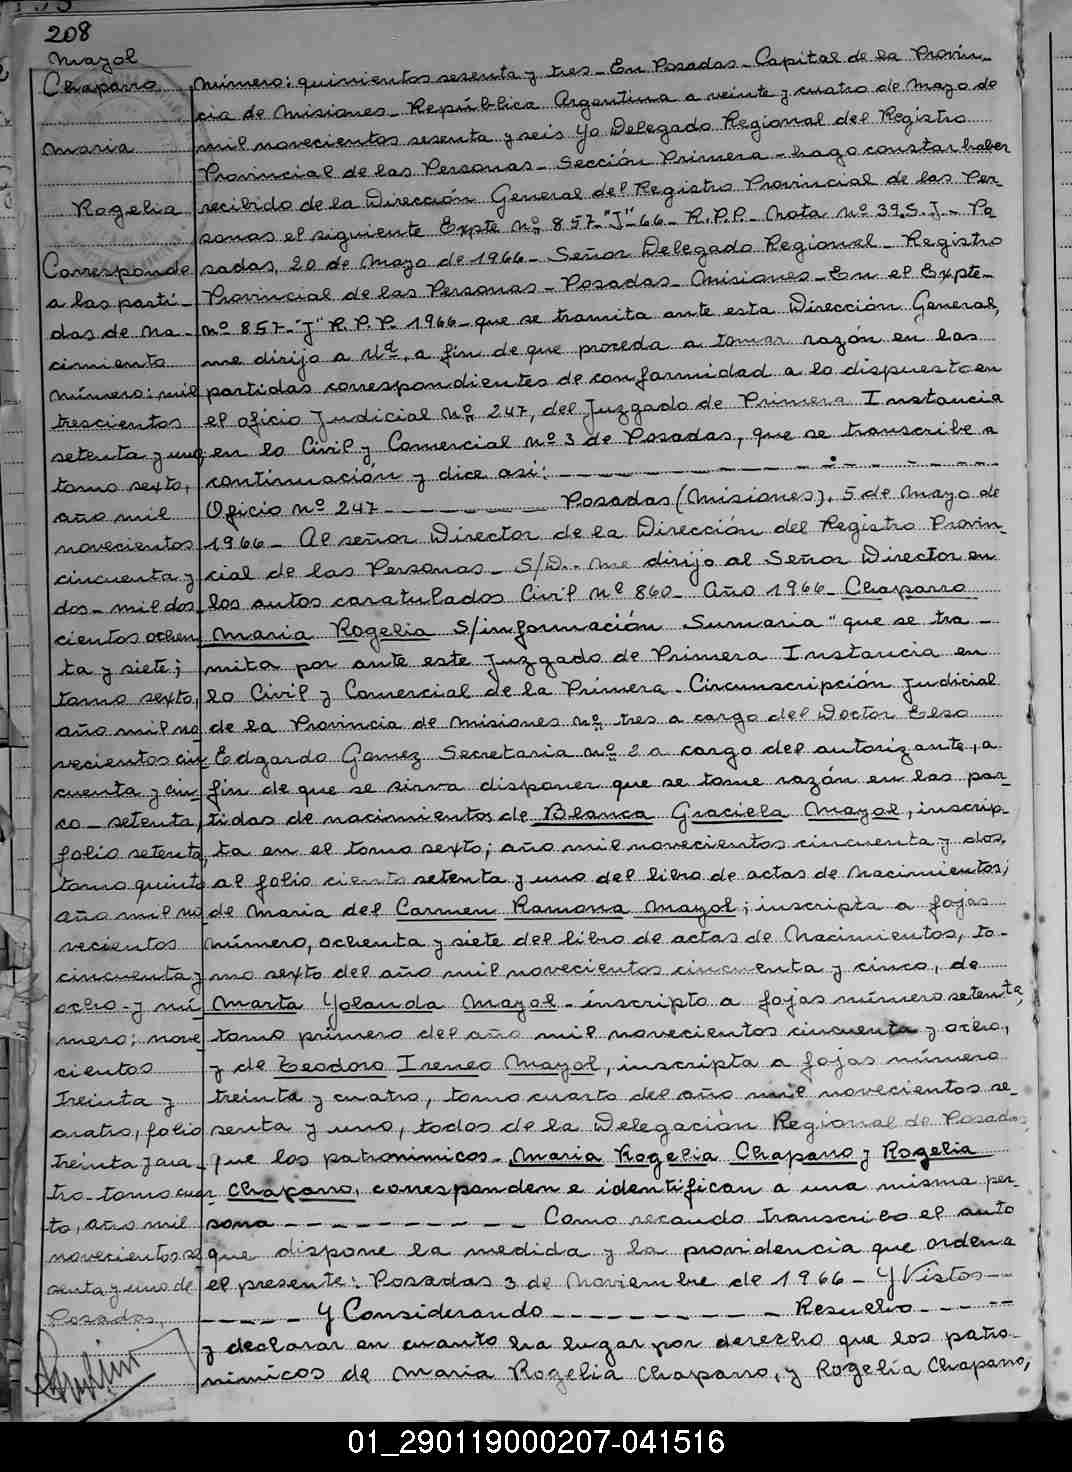 208
Mayol
Chaparro
Maria
Rogelia
Corresponde
a las parti-
das de na-
cimiento
número: mil
trescientos
setenta y uno,
tomo sexto,
año mil
novecientos
cincuenta y
dos - mil dos
cientos ochen
ta y siete;
tomo sexto,
año mil no
vecientos cin
cuenta y cin-
co - setenta,
folio setenta,
tomo quinto
año mil no
vecientos
cincuenta y
ocho - y nú-
mero; nove
cientos
treinta y
cuatro, folio
treinta y cua-
tro - tomo cuar
to, año mil
novecientos se
senta y uno de
Posadas.
Número: quinientos sesenta y tres - En Posadas - Capital de la Provin-
cia de Misiones - República Argentina a veinte y cuatro de Mayo de
mil novecientos sesenta y seis Yo Delegado Regional del Registro
Provincial de las Personas - Sección Primera - hago constar haber
recibido de la Dirección General del Registro Provincial de las Per-
sonas el siguiente Expte Nº 857 "J" 66 - R.P.P. - Nota nº 39.S.J. - Po
sadas, 20 de Mayo de 1966 - Señor Delegado Regional - Registro
Provincial de las Personas - Posadas - Misiones - En el Expte -
Nº 857 - "J" R.P.P. 1966 - que se tramita ante esta Dirección General,
me dirijo a Ud, a fin de que proceda a tomar razón en las
partidas correspondientes de conformidad a lo dispuesto en
el oficio Judicial Nº 247, del Juzgado de Primera Instancia
en lo Civil y Comercial nº 3 de Posadas, que se transcribe a
continuación y dice así: - - - - - - - - - - - - -
Oficio nº 247 - - - - - - Posadas (Misiones), 5 de Mayo de
1966 - Al señor Director de la Dirección del Registro Provin-
cial de las Personas - S/D. - Me dirijo al Señor Director en
los autos caratulados Civil Nº 860 - Año 1966 - Chaparro
Maria Rogelia S/información Sumaria" que se tra -
mita por ante este Juzgado de Primera Instancia en
lo Civil y Comercial de la Primera - Circunscripción Judicial
de la Provincia de Misiones Nº tres a cargo del Doctor Elso
Edgardo Gomez Secretaria nº 2 a cargo del autorizante, a
fin de que se sirva disponer que se tome razón en las par-
tidas de nacimientos de Blanca Graciela Mayol, inscrip-
ta en el tomo sexto; año mil novecientos cincuenta y dos,
al folio ciento setenta y uno del libro de actas de nacimientos;
de Maria del Carmen Ramona Mayol; inscripta a fojas
número, ochenta y siete del libro de actas de Nacimientos, to-
mo sexto del año mil novecientos cincuenta y cinco, de
Marta Yolanda Mayol - inscripto a fojas número setenta,
tomo primero del año mil novecientos cincuenta y ocho,
y de Teodoro Ireneo Mayol, inscripta a fojas número
treinta y cuatro, tomo cuarto del año mil novecientos se-
senta y uno, todos de la Delegación Regional de Posadas,
que los patronimicos - Maria Rogelia Chaparro y Rogelia
Chaparro, corresponden e identifican a una misma per-
sona - - - - - - - - - - Como recaudo transcribo el auto
que dispone la medida y la providencia que ordena
el presente: Posadas 3 de Noviembre de 1966 - Y Vistos -
- - - - - Y Considerando - - - - - - - - Resuelvo - - - - -
y declarar en cuanto ha lugar por derecho que los patro-
nimicos de Maria Rogelia Chaparro, y Rogelia Chaparro,
01_290119000207-041516